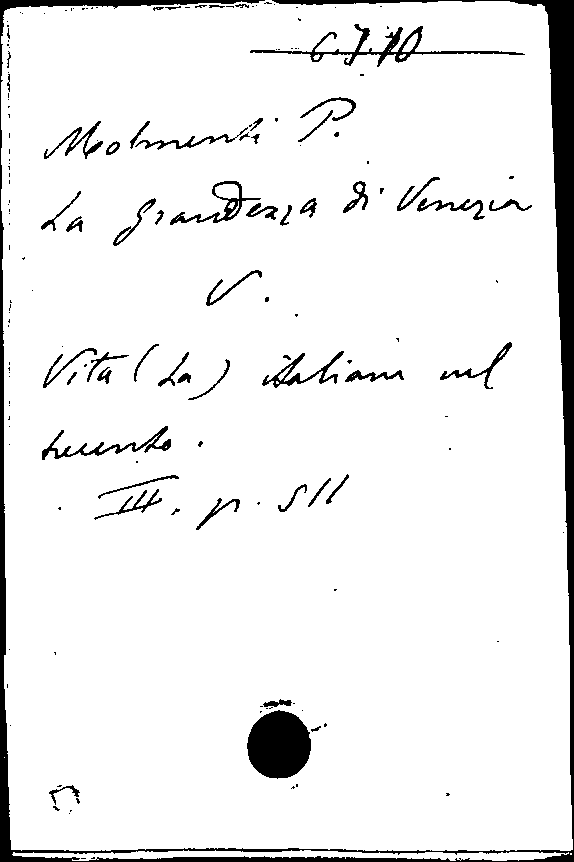 6.7.10
Molmenti P.
La grandezza di Venezia
V.
Vita (La) italiana nel
trecento.
III. p. 511